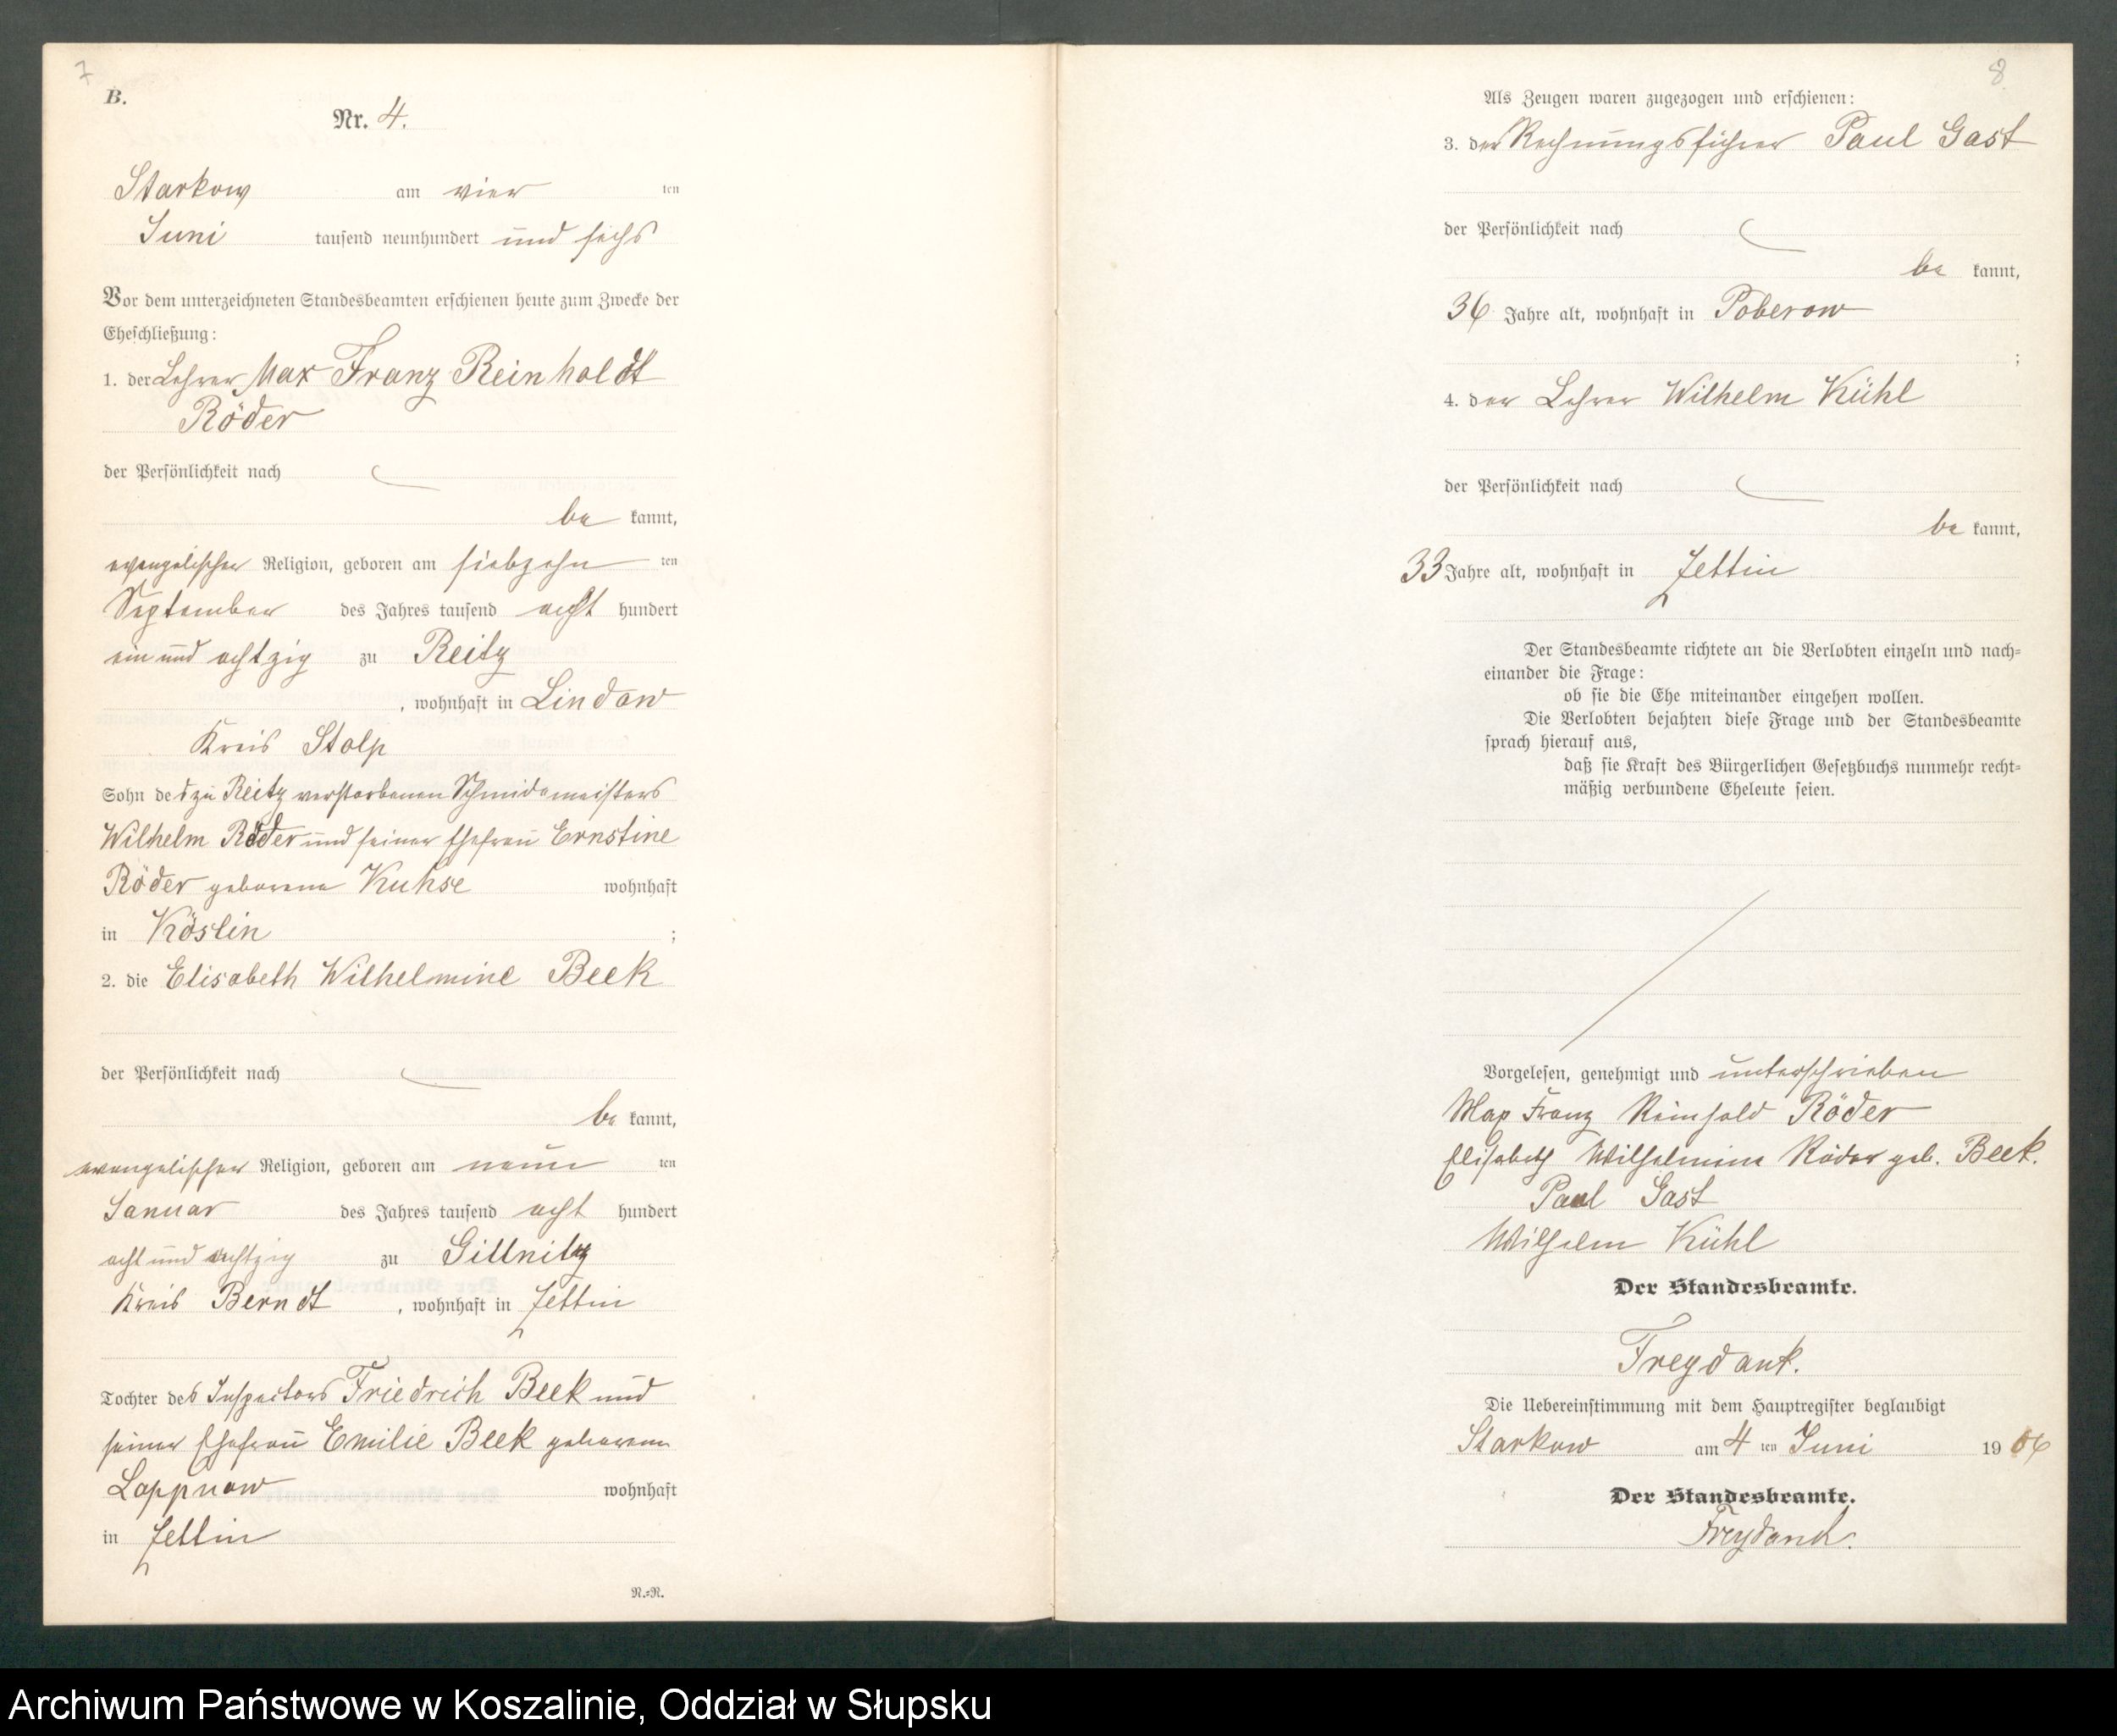 7
B.
Nr. 4.
Starkow am vier ten
Juni tausend neunhundert und sechs
Vor dem unterzeichneten Standesbeamten erschienen heute zum Zwecke der
Eheschließung:
1. der Lehrer Max Franz Reinholdt
Röder
der Persönlichkeit nach
be kannt,
evangelischer Religion, geboren am siebzehn ten
September des Jahres tausend acht hundert
ein und achtzig zu Reitz
, wohnhaft in Lindow
Kreis Stolp
Sohn des zu Reitz verstorbenen Schmiedemeisters
Wilhelm Röder und seiner Ehefrau Ernstine
Röder geborene Kuhse wohnhaft
in Köslin ;
2. die Elisabeth Wilhelmine Beek
der Persönlichkeit nach
be kannt,
evangelischer Religion, geboren am neun ten
Januar des Jahres tausend acht hundert
acht und achtzig zu Gillnitz
Kreis Berndt , wohnhaft in Zettin
Tochter des Inspectors Friedrich Beek und
seiner Ehefrau Emilie Beek geborenen
Lappnow wohnhaft
in Zettin
N.=R.
8
Als Zeugen waren zugezogen und erschienen:
3. der Rechnungsführer Paul Gast
der Persönlichkeit nach
be kannt,
36 Jahre alt, wohnhaft in Poberow
;
4. der Lehrer Wilhelm Kühl
der Persönlichkeit nach
be kannt,
33 Jahre alt, wohnhaft in Zettin
Der Standesbeamte richtete an die Verlobten einzeln und nach=
einander die Frage:
ob sie die Ehe miteinander eingehen wollen.
Die Verlobten bejahten diese Frage und der Standesbeamte
sprach hierauf aus,
daß sie Kraft des Bürgerlichen Gesetzbuchs nunmehr recht=
mäßig verbundene Eheleute seien.
Vorgelesen, genehmigt und unterschrieben
Max Franz Reinhold Röder
Elisabeth Wilhelmine Röder geb. Beek.
Paul Gast
Wilhelm Kühl
Der Standesbeamte.
Freydank.
Die Uebereinstimmung mit dem Hauptregister beglaubigt
Starkow am 4 ten Juni 19 06
Der Standesbeamte.
Freydank.
Archiwum Państwowe w Koszalinie, Oddział w Słupsku